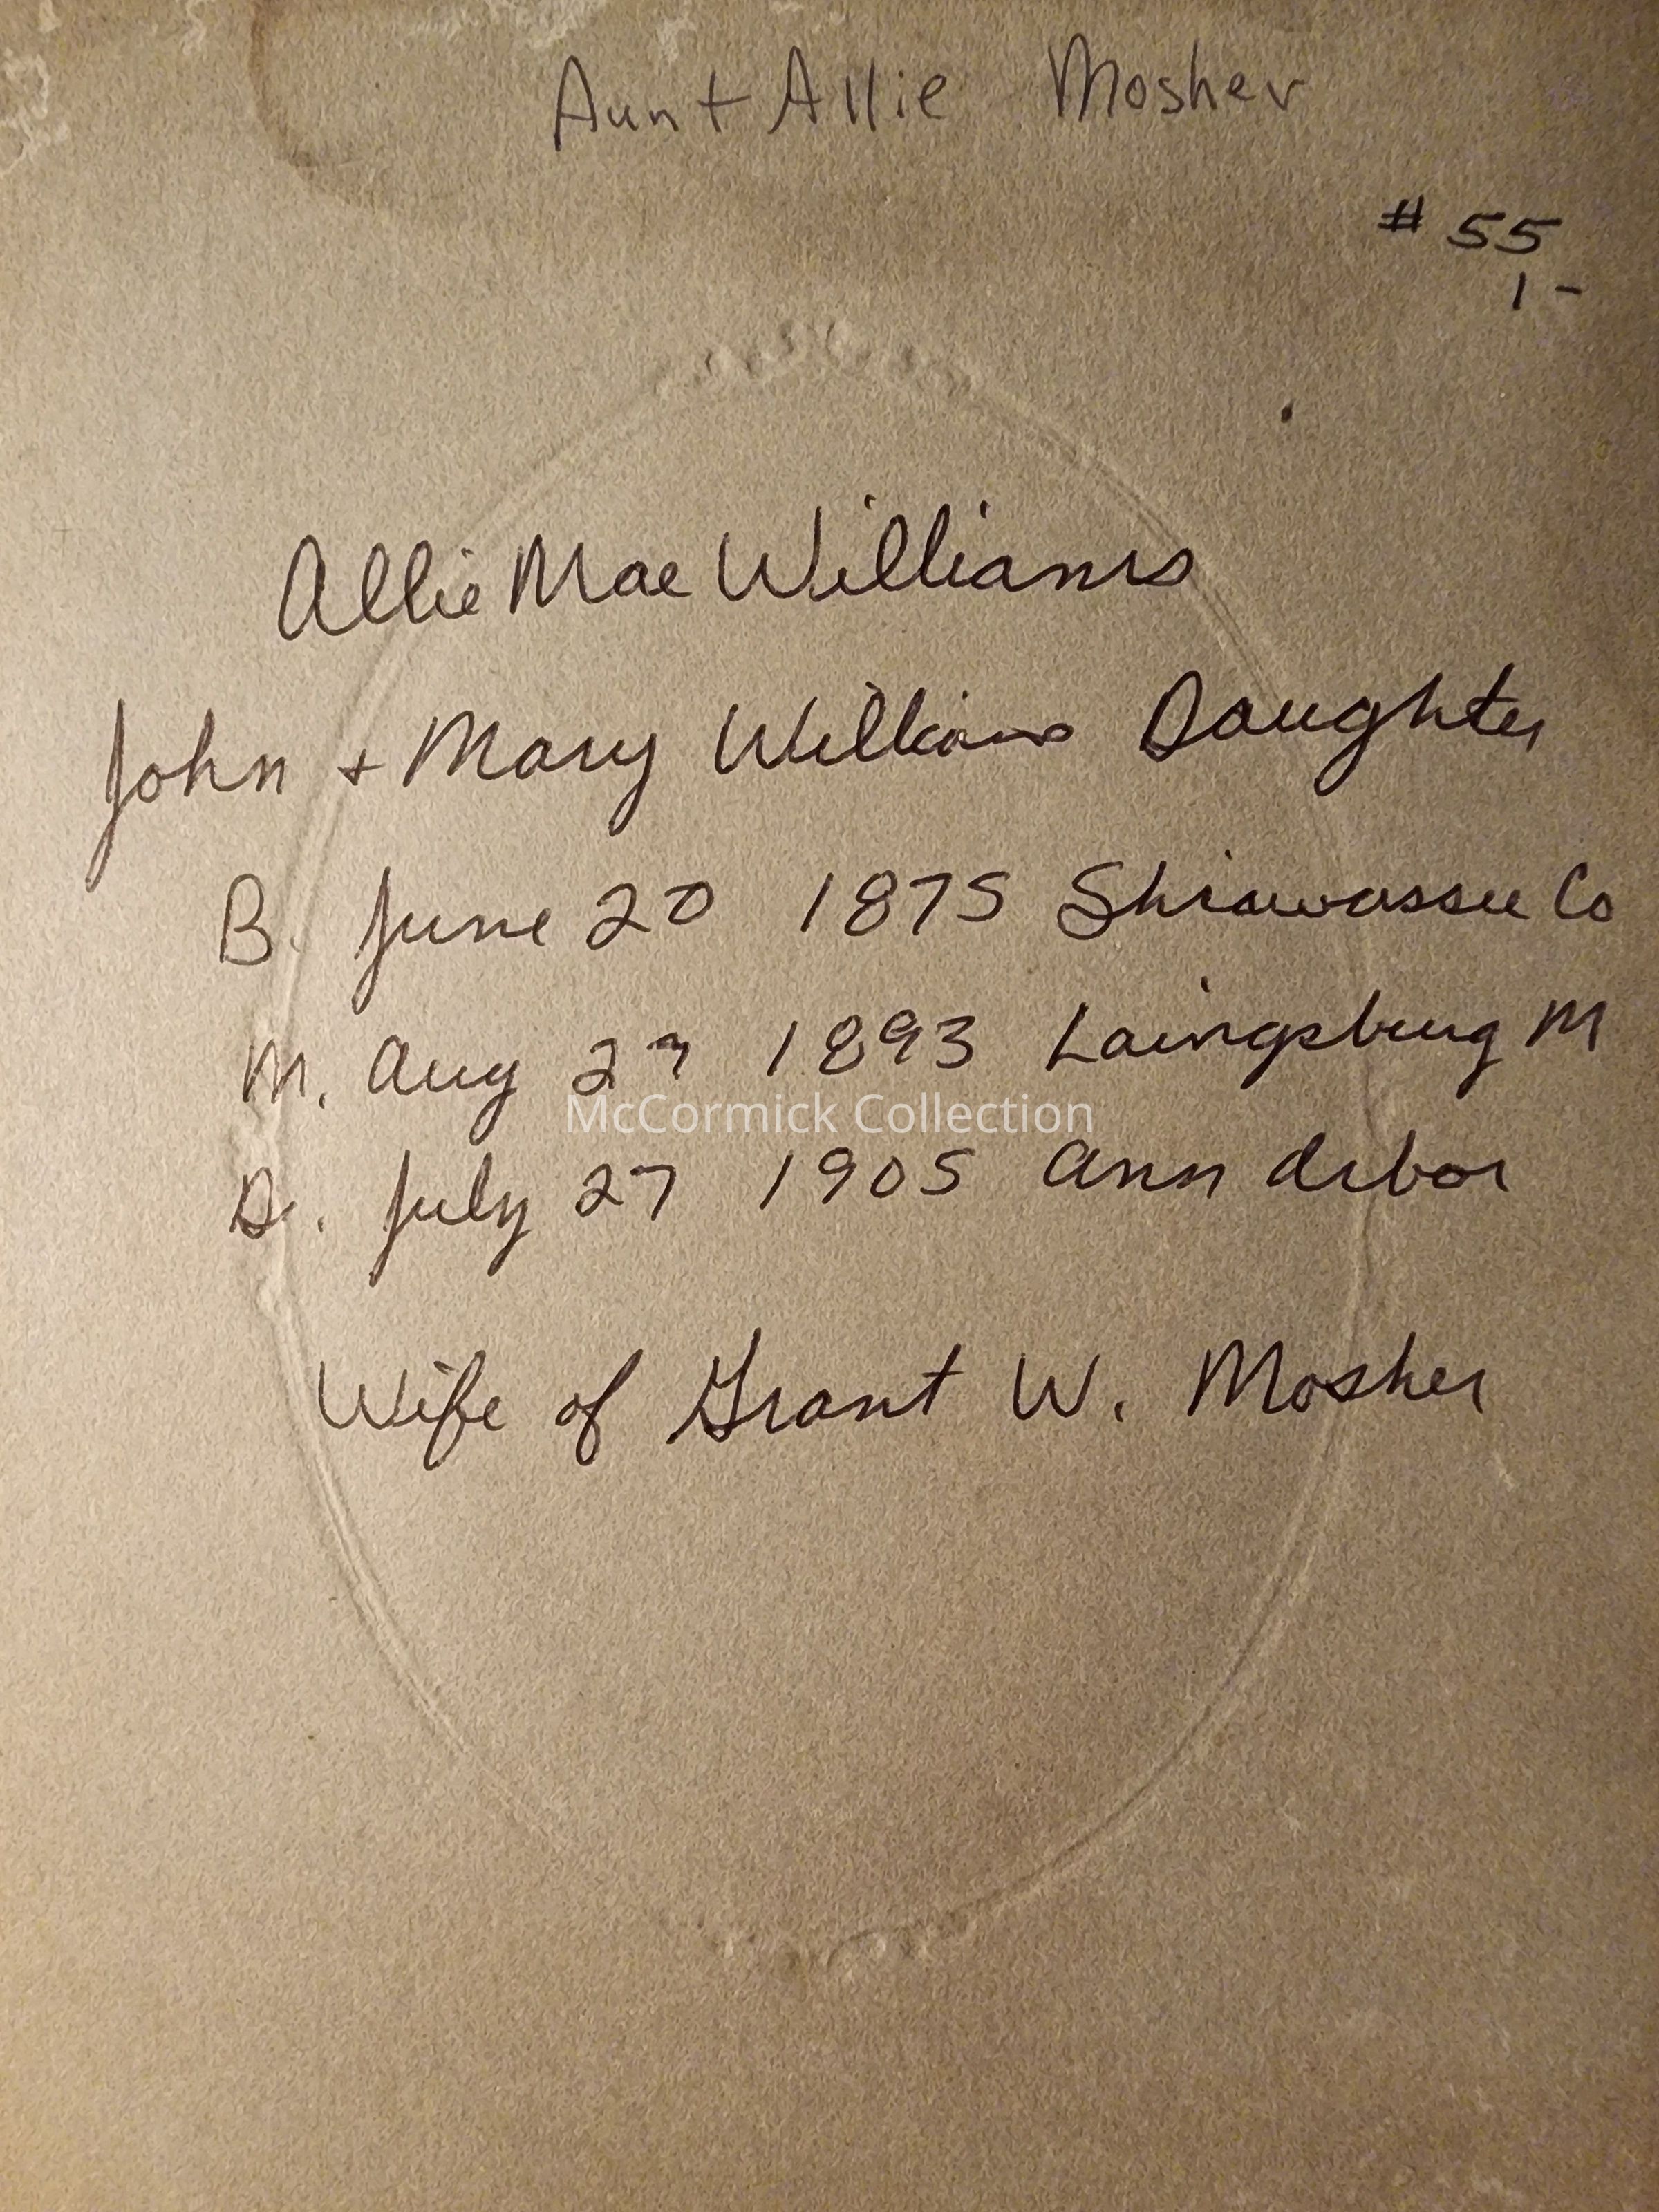 Aunt Allie Mosher
# 55
1 -
Allie Mae Williams
John + Mary Williams Daughter
B. June 20 1875 Shiawassee Co
M. Aug 1893 Laingsburg M
McCormick Collection
D. July 27 1905 Ann Arbor
Wife of Grant W. Mosher